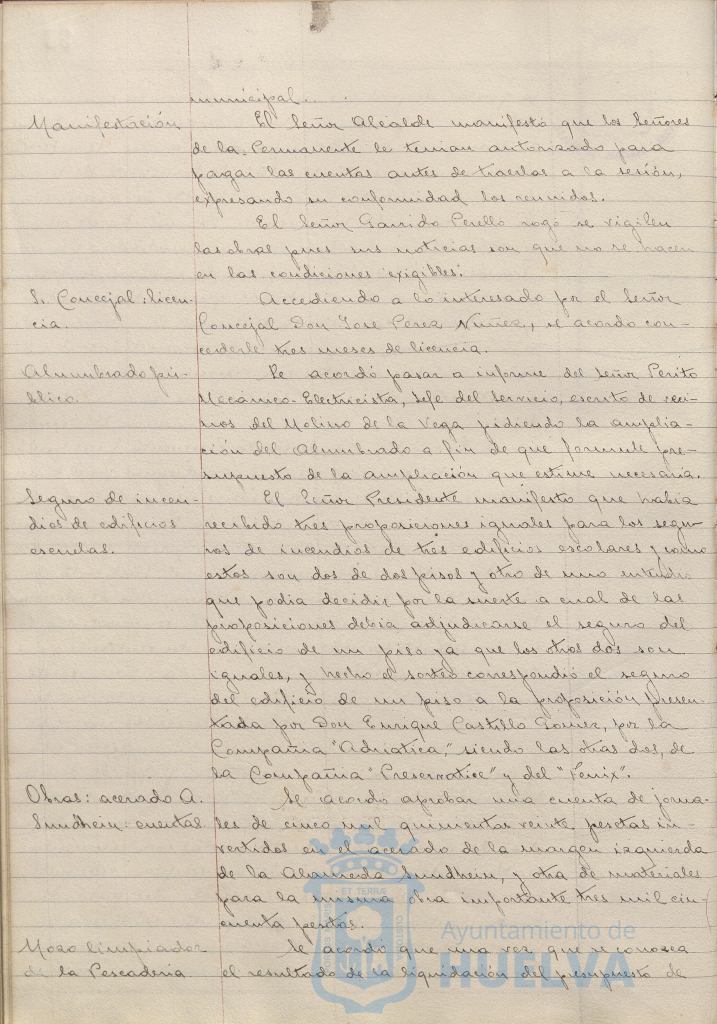 municipal.
Manifestación
El Señor Alcalde manifestó que los Señores
de la Permanente le tenian autorizado para
pagar las cuentas antes de traerlas a la sesión,
expresando su conformidad los reunidos.
El Señor Garrido Perelló rogó se vigilen
las obras pues sus noticias son que no se hacen
en las condiciones exigibles.
S. Concejal: licen-
cia.
Accediendo a lo interesado por el Señor
Concejal Don Jose Perez Nuñez, se acordo con-
cederle tres meses de licencia.
Alumbrado pú-
blico.
Se acordó pasar a informe del Señor Perito
Mecánico-Electricista, Jefe del Servicio, escrito de veci-
nos del Molino de la Vega pidiendo la amplia-
ción del Alumbrado a fin de que formule pre-
supuesto de la ampliación que estime necesaria.
Seguro de incen-
dios de edificios
escuelas.
El Señor Presidente manifestó que habia
recibido tres proposiciones iguales para los segu-
ros de incendios de tres edificios escolares y como
estos son dos de dos pisos y otro de uno entendia
que podia decidir por la suerte a cual de las
proposiciones debia adjudicarse el seguro del
edificio de un piso ya que los otros dos son
iguales, y hecho el sorteo correspondió el seguro
del edificio de un piso a la proposición presen-
tada por Don Enrique Castillo Gomez, por la
Compañia "Adriatica," siendo las otras dos, de
la Compañia "Preservatice" y del "Fenix".
Obras: acerado A.
Sundhein: cuentas.
Se acordo aprobar una cuenta de jorna-
les de cinco mil quinientas veinte pesetas in-
vertidos en el acerado de la margen izquierda
de la Alameda Sundhein, y otra de materiales
para la misma obra importante tres mil cin-
cuenta pesetas.
Mozo limpiador
de la Pescaderia
Se acordó que una vez que se conozca
el resultado de la liquidación del presupuesto de
Ayuntamiento de
HUELVA